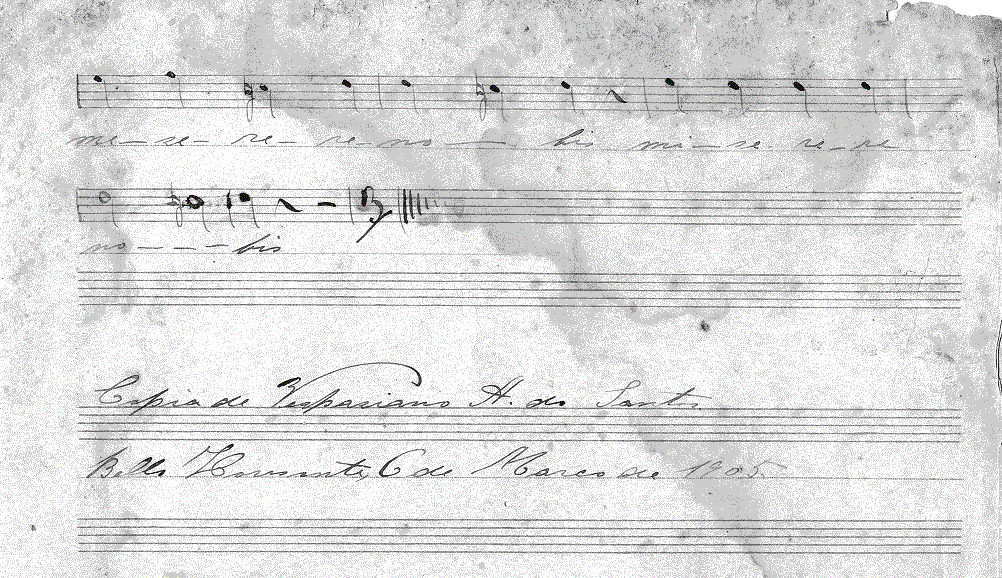 mi- se- re- re- no- bis mi- se- re- re
no- - - - bis
Copia de Vespasiano A. dos Santos
Bello Horisonte, 6 de Março de 1905